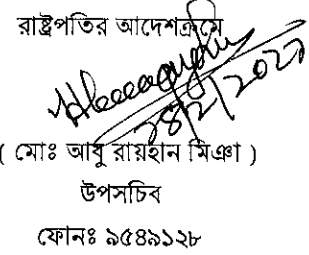 রাষ্ট্রপতির আদেশক্রমে
( মোঃ আবু রায়হান মিঞা )
উপসচিব
ফোনঃ ৯৫৪৯১২৮